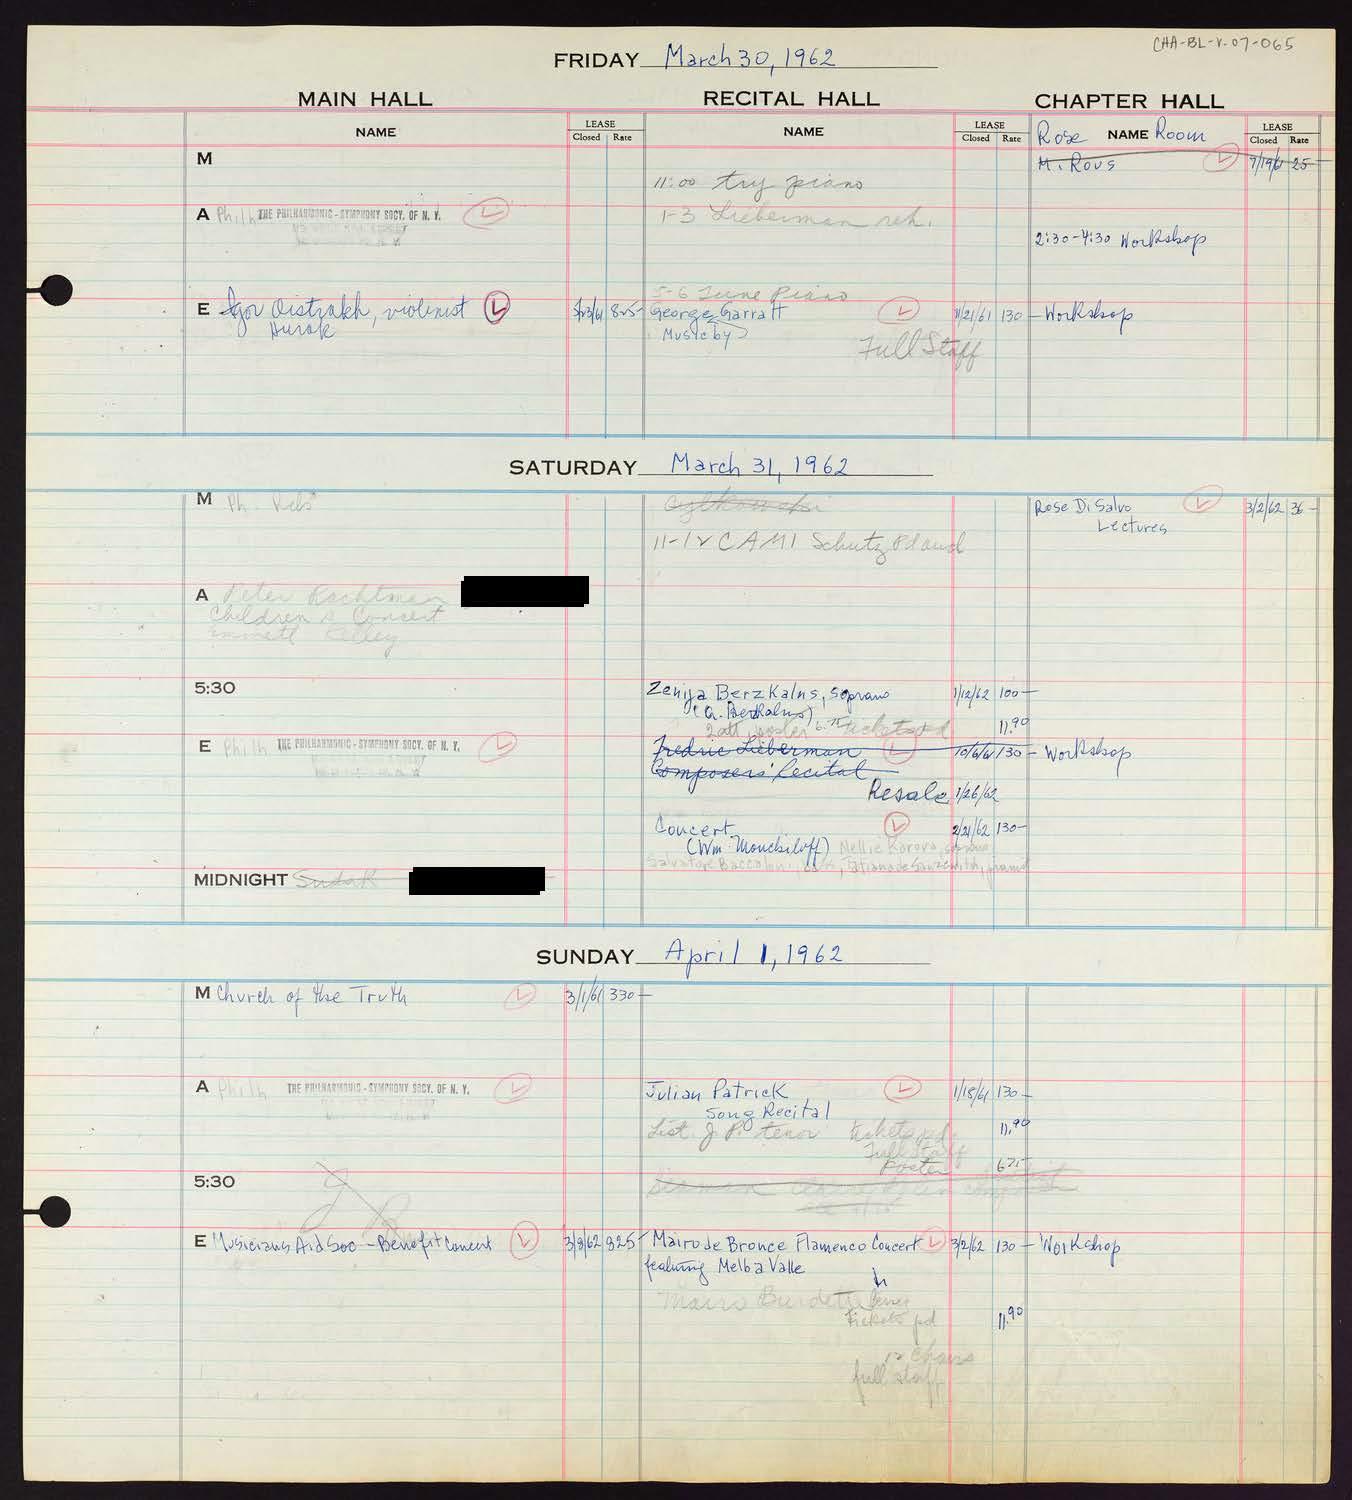 CHA-BL-V-07-065
FRIDAY March 30, 1962
MAIN HALL RECITAL HALL CHAPTER HALL
NAME LEASE Closed Rate NAME LEASE Closed Rate Rose NAME Room LEASE Closed Rate
M
M. Rous 7/19/61 25-
11:00 try piano
A Philh THE PHILHARMONIC-SYMPHONY SOCY. OF N. Y.
1-3 Lieberman reh.
2:30-4:30 Workshop
5-6 Tune Piano
E Igor Oistrakh, violinist 825- George Garratt 11/21/61 130- Workshop
Hurok
Music by
Full Staff
SATURDAY March 31, 1962
M Ph. Rebs
Rose Di Salvo 3/2/62 36-
Lectures
11-12 CAMI Schutz Pd aud
A Peter Rachtman
Children's Concert
Emmett Kelley
5:30 Zenija Berzkalns, soprano 1/12/62 100-
(A. Berzkalns)
tickets pd 11.90
E Philh THE PHILHARMONIC-SYMPHONY SOCY. OF N. Y.
Fredric Lieberman 10/6/61 130- Workshop
Composers' Recital
Resale 1/26/62
Concert 2/21/62 130-
(Wm. Monchiloff) Nellie Karova, soprano
Salvatore Baccaloni, bass,
MIDNIGHT
SUNDAY April 1, 1962
M Church of the Truth 3/1/61 330-
A Philh THE PHILHARMONIC-SYMPHONY SOCY. OF N. Y.
Julian Patrick 1/18/61 130-
Song Recital
List. J. P. tenor tickets pd. 11.90
Full Staff
Poster 6.75
5:30
E Musicians Aid Soc - Benefit Concert 3/8/62 825- Mairo de Bronce Flamenco Concert 3/2/62 130- Workshop
featuring Melba Valle
Mairo Burdette
tickets pd 11.90
12 chairs
full staff